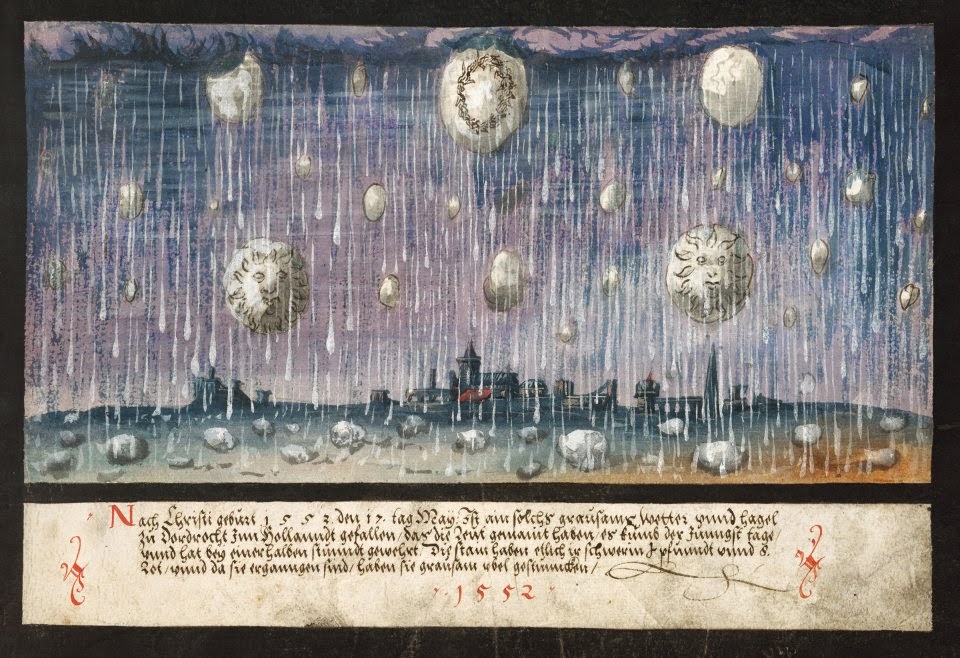 Nach Christi geburt 1552. den 17. tag May: Ist ain solchs grausams wetter vnnd hagel
zu Dordrocht Jnn Hollanndt gefallen / das die leut gemaint haben / es kumb der Jüngst tage /
vnnd hat bey einer halben stunndt gewehrt. Die stain haben ettlich
Lot / vnnd da sie erganngen sind / haben sie grausam vbel gestuncken /
1552